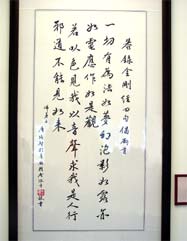 錄金剛經四句偈兩首
一切有為法如夢幻泡影如露亦
如電應作如是觀
若以色見我以音聲求我是人行
邪道不能見如來